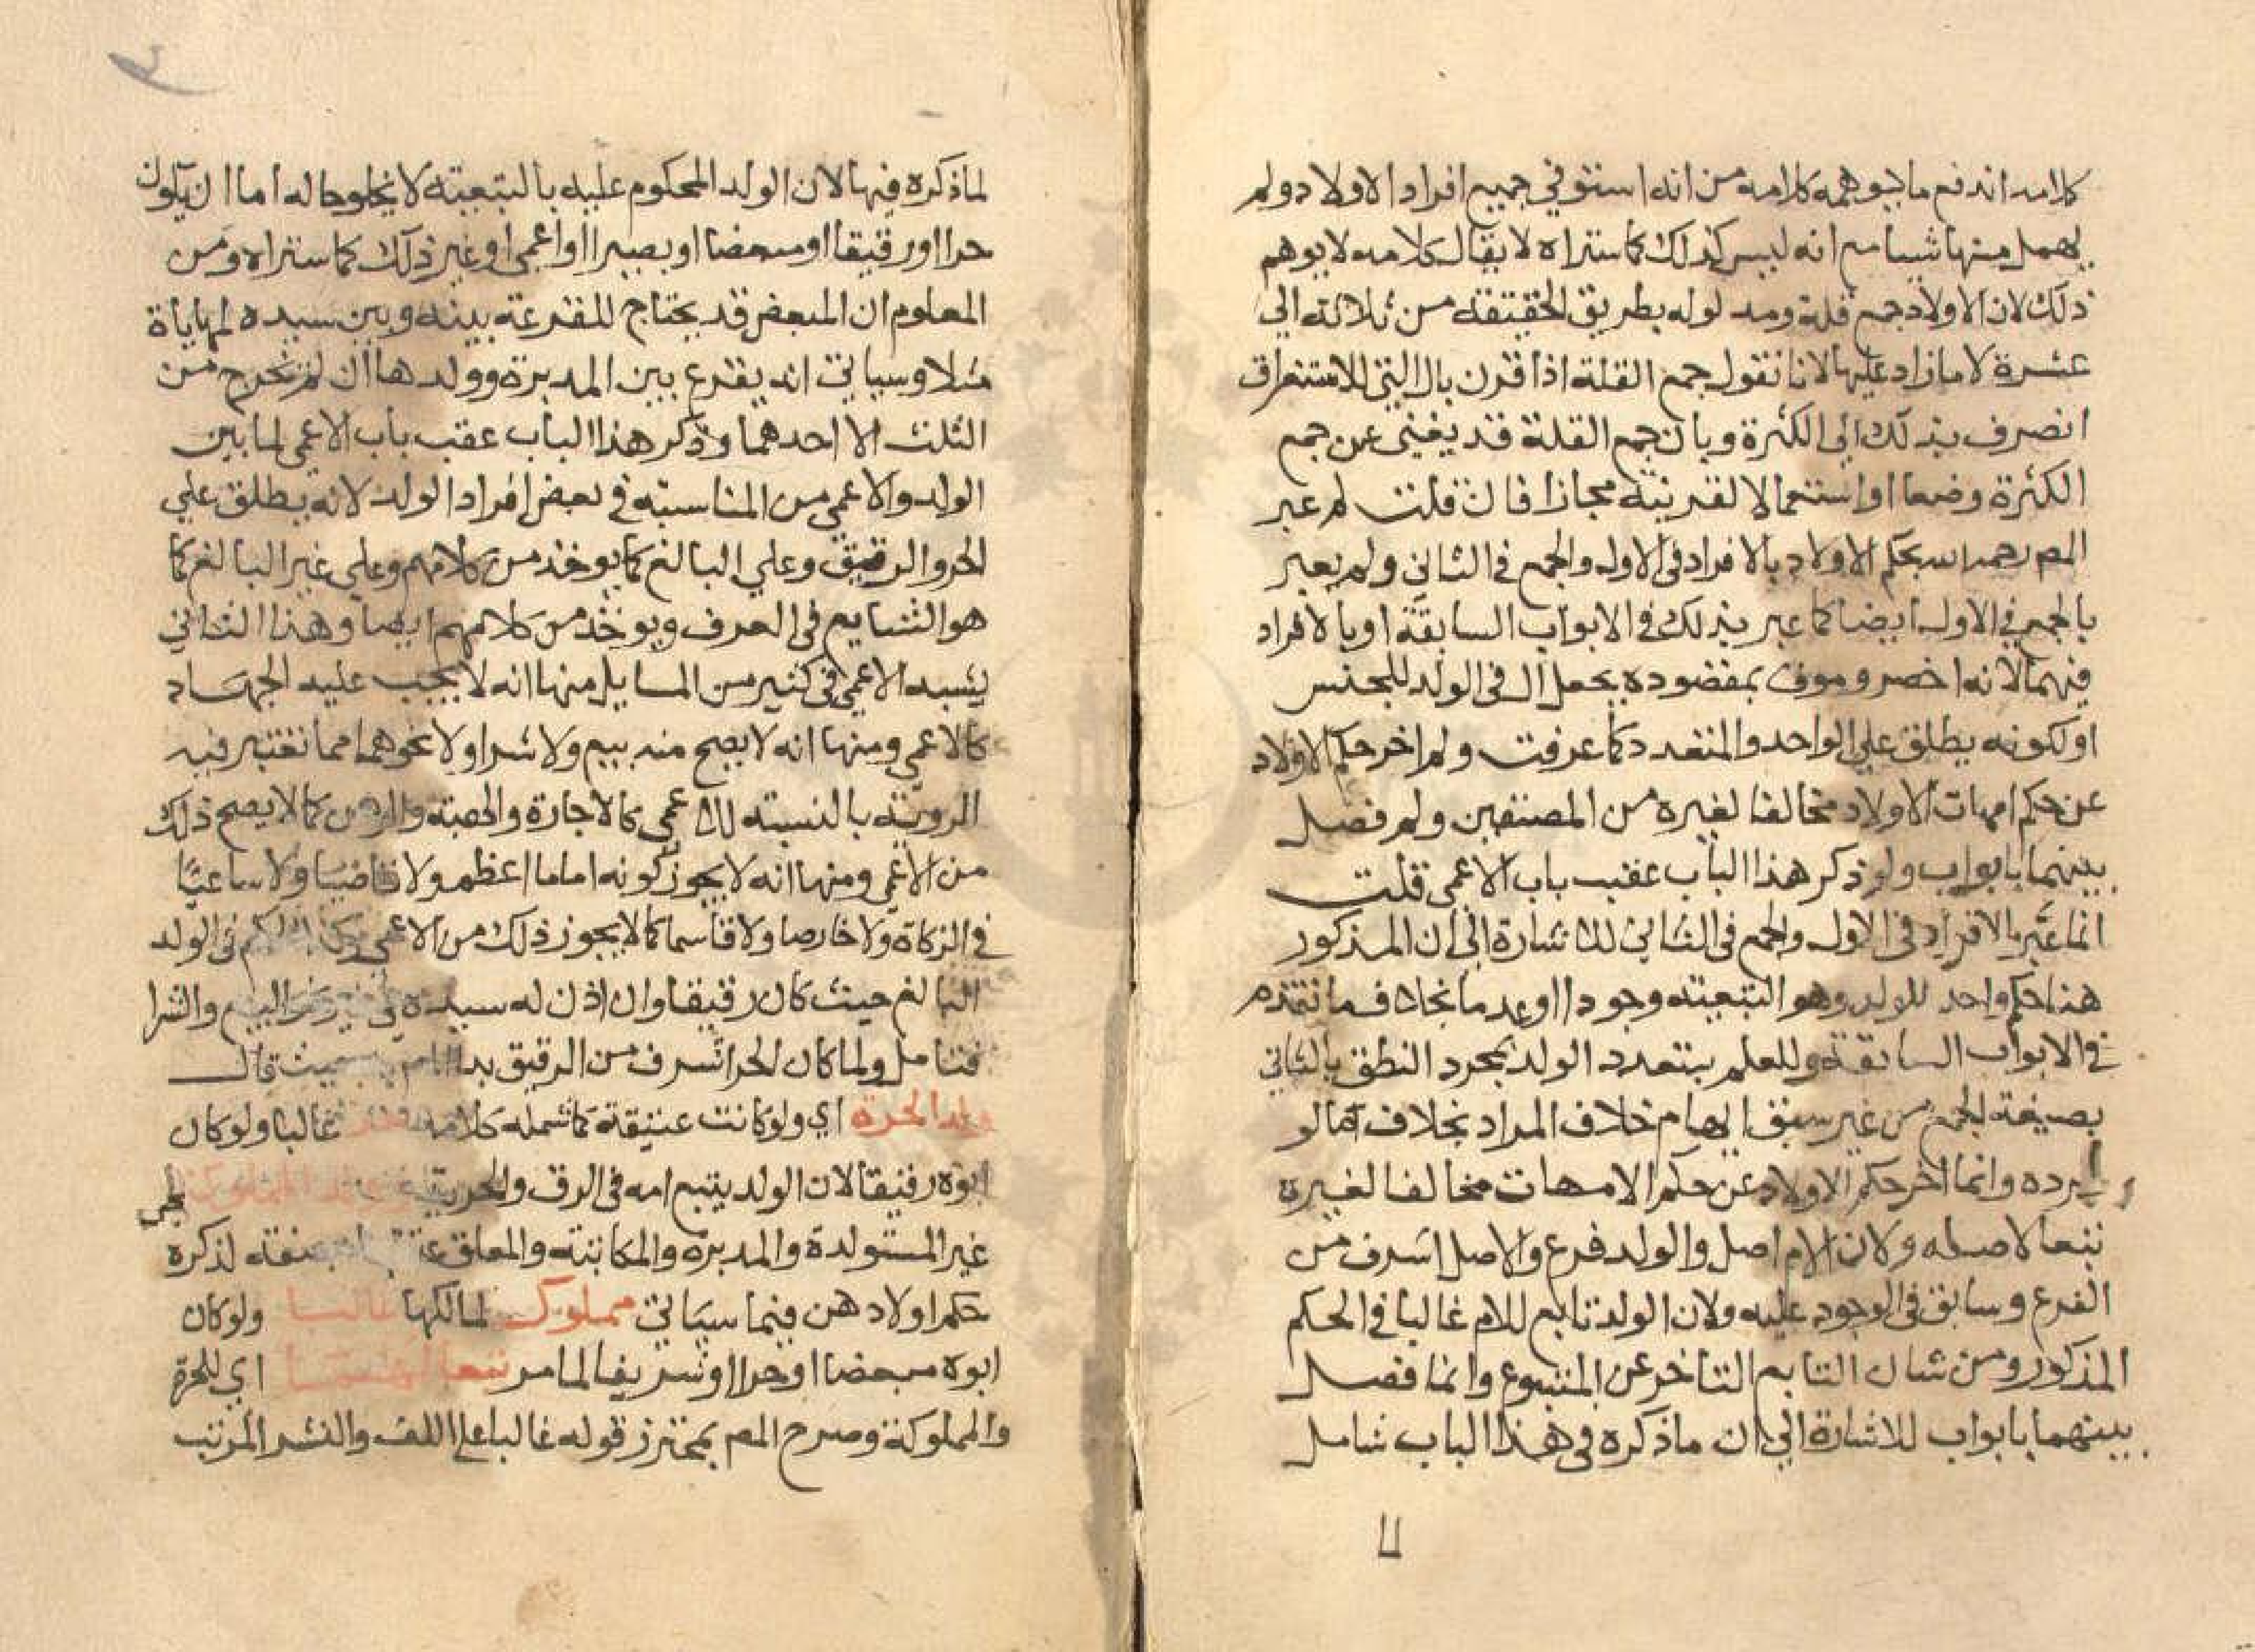 كلامه اندفع ما يتوهمه كلامه من انه استوفي جميع افراد الاولاد ولم
يهمل منها شيئا مع انه ليس كذلك كما ستراه لا يقال كلامه لا يوهم
ذلك لان الاولاد جمع قلة ومدلوله بطريق الحقيقة من ثلاثة الي
عشرة لا ما زاد عليها لانا نقول جمع القلة اذا قرن بال التي للاستغراق
انصرف بذلك الي الكثرة وبان جمع القلة قد يغني عن جمع
الكثرة وضعا او استعمالا لقرينة مجازا فان قلت لم عبر
المص رحمه الله بحكم الاولاد بالافراد في الاول والجمع في الثاني ولم يعبر
بالجمع في الاول ايضا كما عبر بذلك في الابواب السابقة او بالافراد
فيهما لانه اخصر وموف بمقصوده بجعل ال في الولد للجنس
او لكونه يطلق علي الواحد والمتعدد كما عرفت ولم اخر حكم الاولاد
عن حكم امهات الاولاد مخالفا لغيره من المصنفين ولم فصل
بينهما بابواب ولم ذكر هذا الباب عقب باب الاعمي قلت
انما عبر بالافراد في الاول والجمع في الثاني للاشارة الي ان المذكور
هنا حكم واحد للولد وهو التبعية وجودا او عدما بخلاف ما تقدم
في الابواب السابقة وللعلم بتعدد الولد بمجرد النطق بالثاني
بصيغة الجمع من غير سبق ايهام خلاف المراد بخلاف ما لو
افرده وانما اخر حكم الاولاد عن حكم الامهات مخالفا لغيره
تبعا لاصله ولان الام اصل والولد فرع والاصل اشرف من
الفرع وسابق في الوجود عليه ولان الولد تابع للام غالبا في الحكم
المذكور ومن شان التابع التاخر عن المتبوع وانما فصل
بينهما بابواب للاشارة الي ان ما ذكره في هذا الباب شامل
لما ذكره فيها لان الولد المحكوم عليه بالتبعية لا يخلو حاله اما ان يكون
حرا او رقيقا او مبعضا او بصيرا او اعمي او غير ذلك كما ستراه ومن
المعلوم ان المبعض قد يحتاج للقرعة بينه وبين سيده لمهاياة
مثلا وسياتي انه يقرع بين المدبرة وولدها ان لم يخرج من
الثلث الا احدهما وذكر هذا الباب عقب باب الاعمي لما بين
الولد والاعمي من المناسبة في بعض افراد الولد لانه يطلق علي
الحر والرقيق وعلي البالغ كما يوخذ من كلامهم وعلي غير البالغ كما
هو الشايع في العرف ويوخذ من كلامهم ايضا وهذا الثاني
يشبه الاعمي في كثير من المسايل منها انه لا يجب عليه الجهاد
كالاعمي ومنها انه لا يصح منه بيع ولا شراء ولا نحوهما مما تعتبر فيه
الروية بالنسبة للاعمي كالاجارة والهبة والرهن كما لا يصح ذلك
من الاعمي ومنها انه لا يجوز كونه اماما اعظم ولا قاضيا ولا ساعيا
في الزكاة ولا خارصا ولا قاسما كما لا يجوز ذلك من الاعمي وكذا الحكم في الولد
البالغ حيث كان رقيقا وان اذن له سيده في البيع والشرا
فتامل ولما كان الحر اشرف من الرقيق بدا المص به حيث قال
ولد الحرة اي ولو كانت عتيقة كما شمله كلامه غالبا ولو كان
ابوه رقيقا لان الولد يتبع امه في الرق والحرية وولد المملوكة
غير المستولدة والمدبرة والمكاتبة والمعلق بصفة لذكره
حكم اولادهن فيما سياتي مملوك لمالكها غالبا ولو كان
ابوه مبعضا او حرا او شريفا لما مر تبعا لهما اي للحرة
والمملوكة وصرح المص بمحترز قوله غالبا علي اللف والنشر المرتب